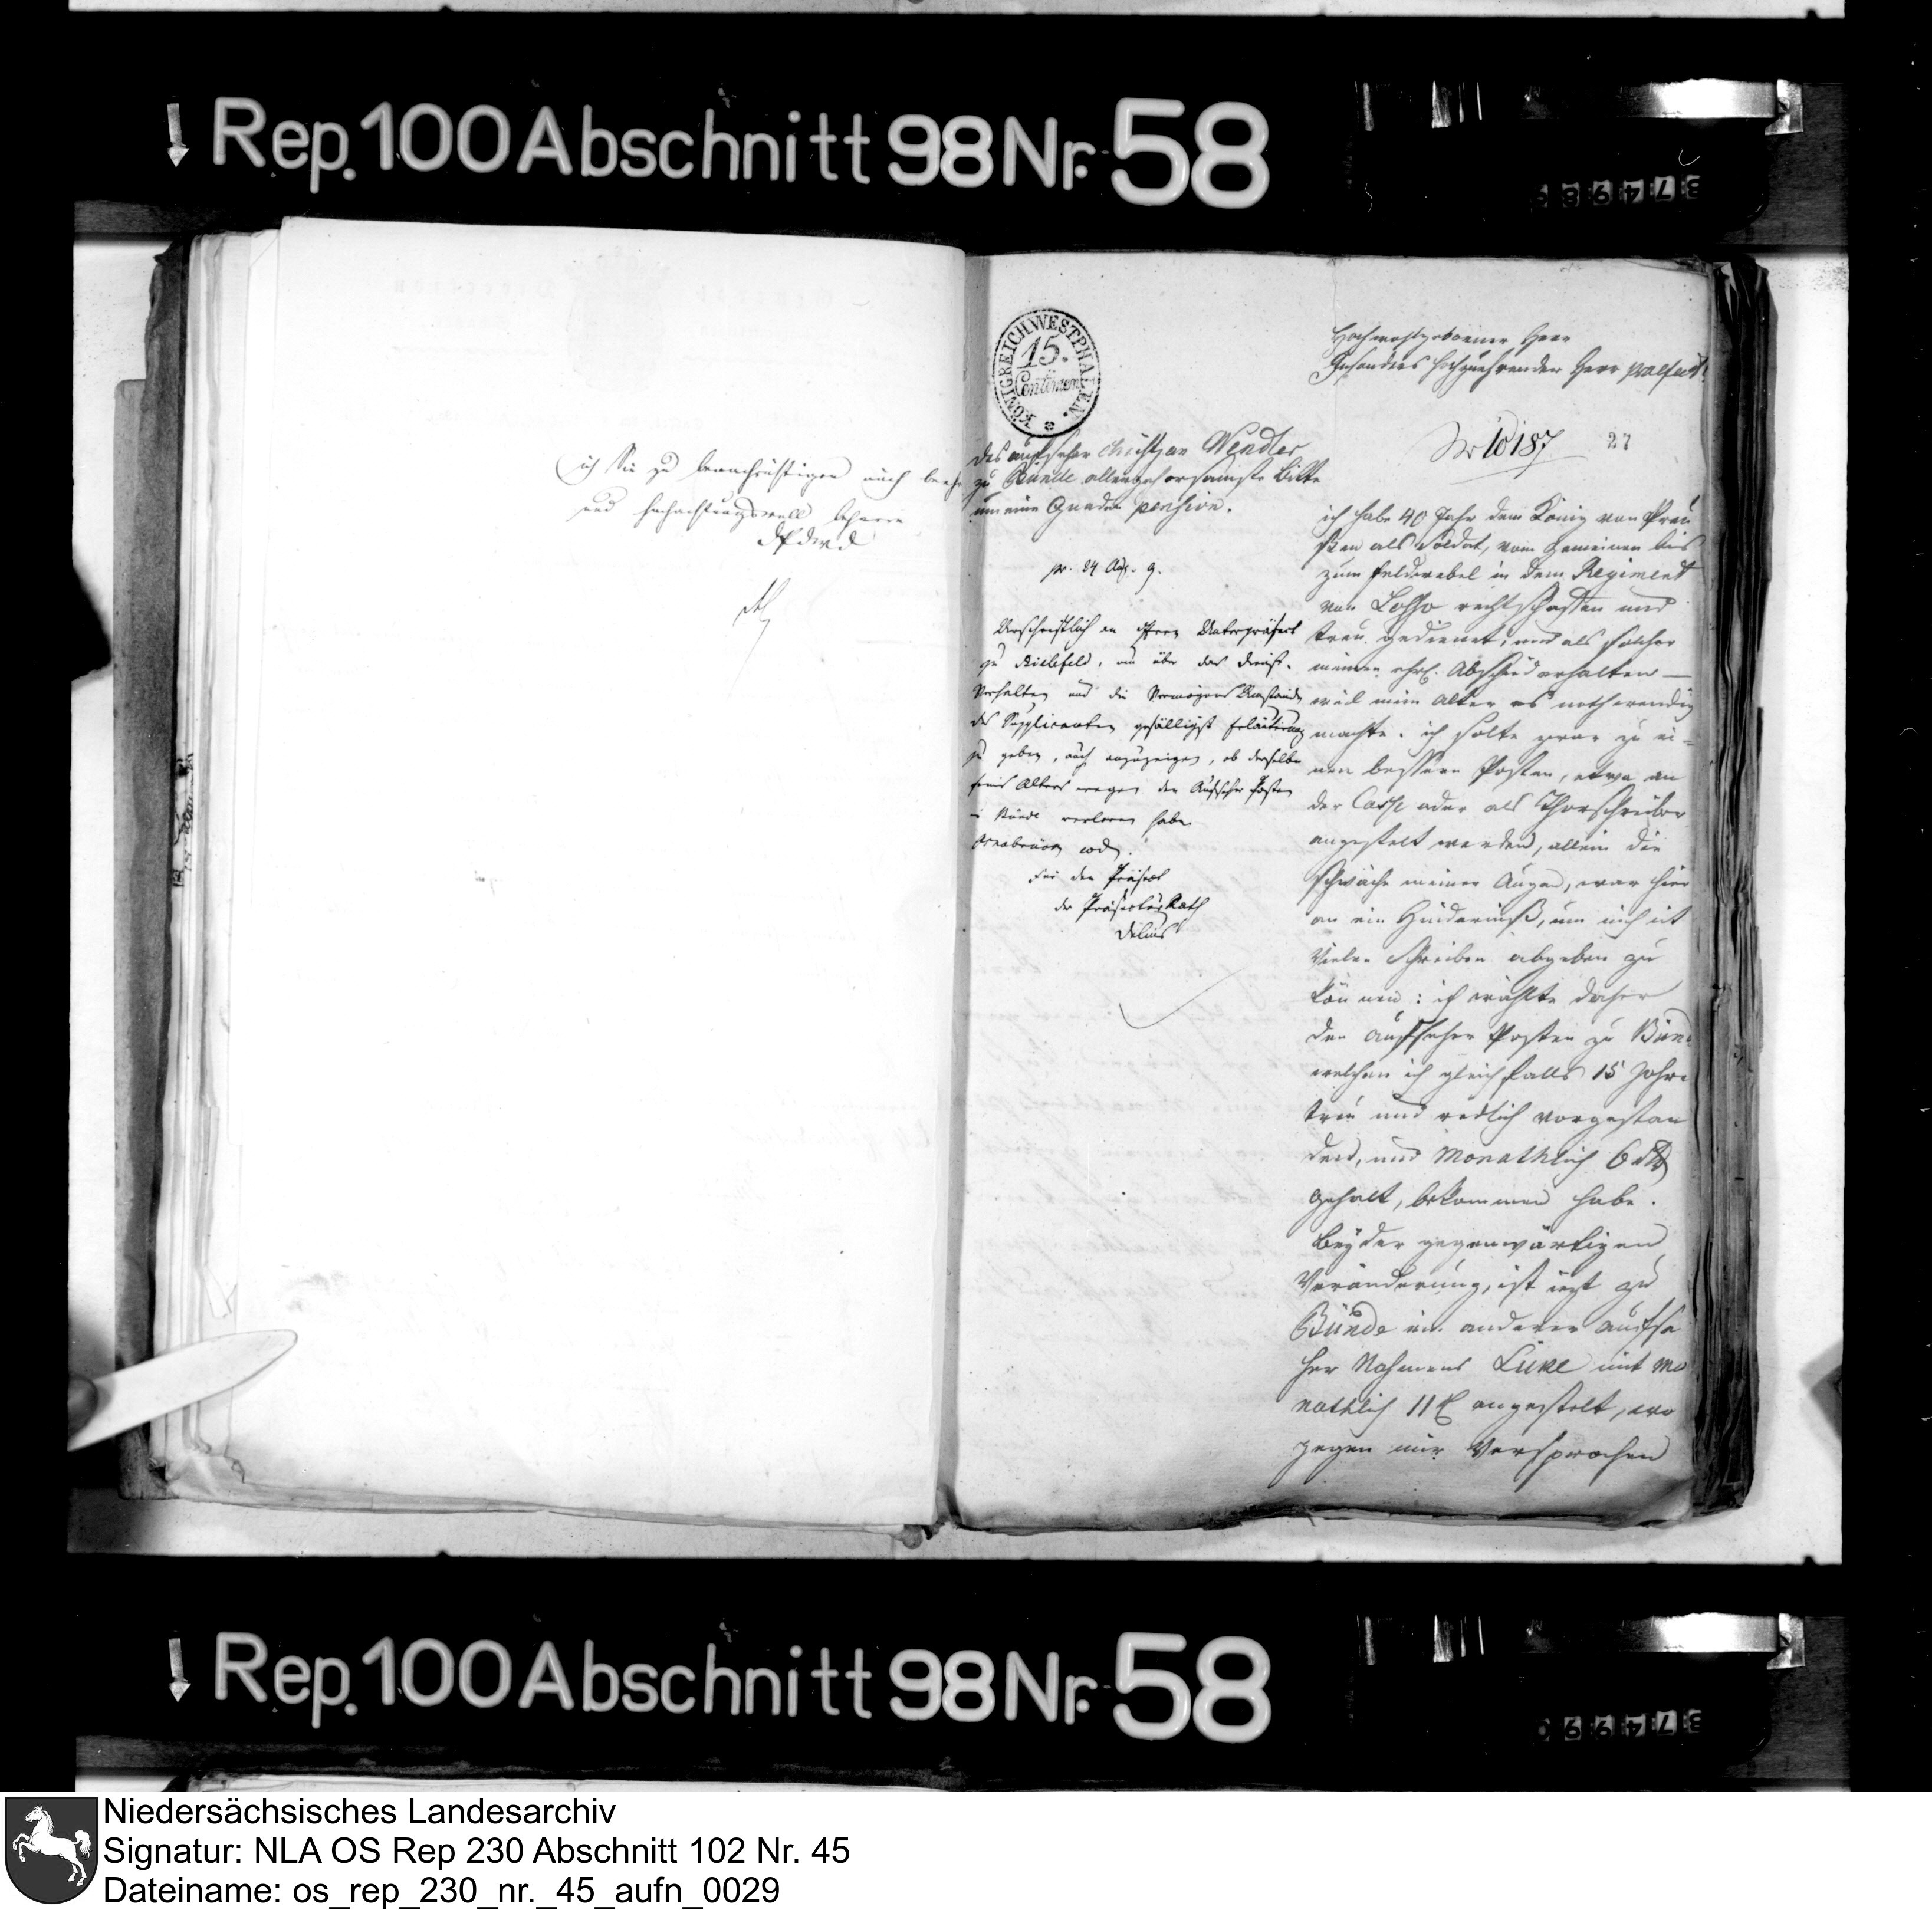 Rep. 100 Abschnitt 98 Nr. 58
374989
ich Sie zu benachrichtigen mich beehre
und hochachtungsvoll beharre
KÖNIGREICH WESTPHALEN.
15.
Centimen
Hochwohlgeborner Herr
Besonders hochzuehrender Herr Präfect!
No 10187
27
des aufseher Christian Wendler
zu Bünde allergehorsamste Bitte
um eine Gnaden pension.
pr. 24 Aug. 9.
Urschriftlich an Herrn Unterpräfect
zu Bielefeld, um über das Dienst-
Verhalten und die Vermögens Umstände
des Supplicanten gefälligst Erläuterung
zu geben, auch anzuzeigen, ob derselbe
seines Alters wegen den Aufseher Posten
in Bünde verloren habe.
Osnabrück eod.
Für den Präfect
der PräfecturRath
Delius
ich habe 40 Jahr dem König von Preu
ßen als Soldat, vom Gemeinen bis
zum feldwebel in dem Regiment
von Losso rechtschaffen und
treu gedienet, und als solcher
meinen ehrl. Abschied erhalten —
weil mein Alter es nothwendig
machte. ich solte zwar zu ei-
nen bessern Posten, etwa an
der Casse oder als Thorschreiber
angestelt werden, allein die
schwäche meiner Augen, war hier
an ein Hinderniß, um mich mit
vielen Schreiben abgeben zu
können: ich wählte daher
den aufseher Posten zu Bünde
welchen ich gleichfalls 15 Jahre
treu und redlich vorgestan
den, und Monathlich 6 rth
gehalt, bekommen habe.
bey der gegenwärtigen
Veränderung, ist jezt zu
Bünde ein anderer aufse
her Nahmens Lüke mit Mo
nathlich 11 angestelt, wo
gegen mir versprochen
Rep. 100 Abschnitt 98 Nr. 58
374990
Niedersächsisches Landesarchiv
Signatur: NLA OS Rep 230 Abschnitt 102 Nr. 45
Dateiname: os_rep_230_nr._45_aufn_0029